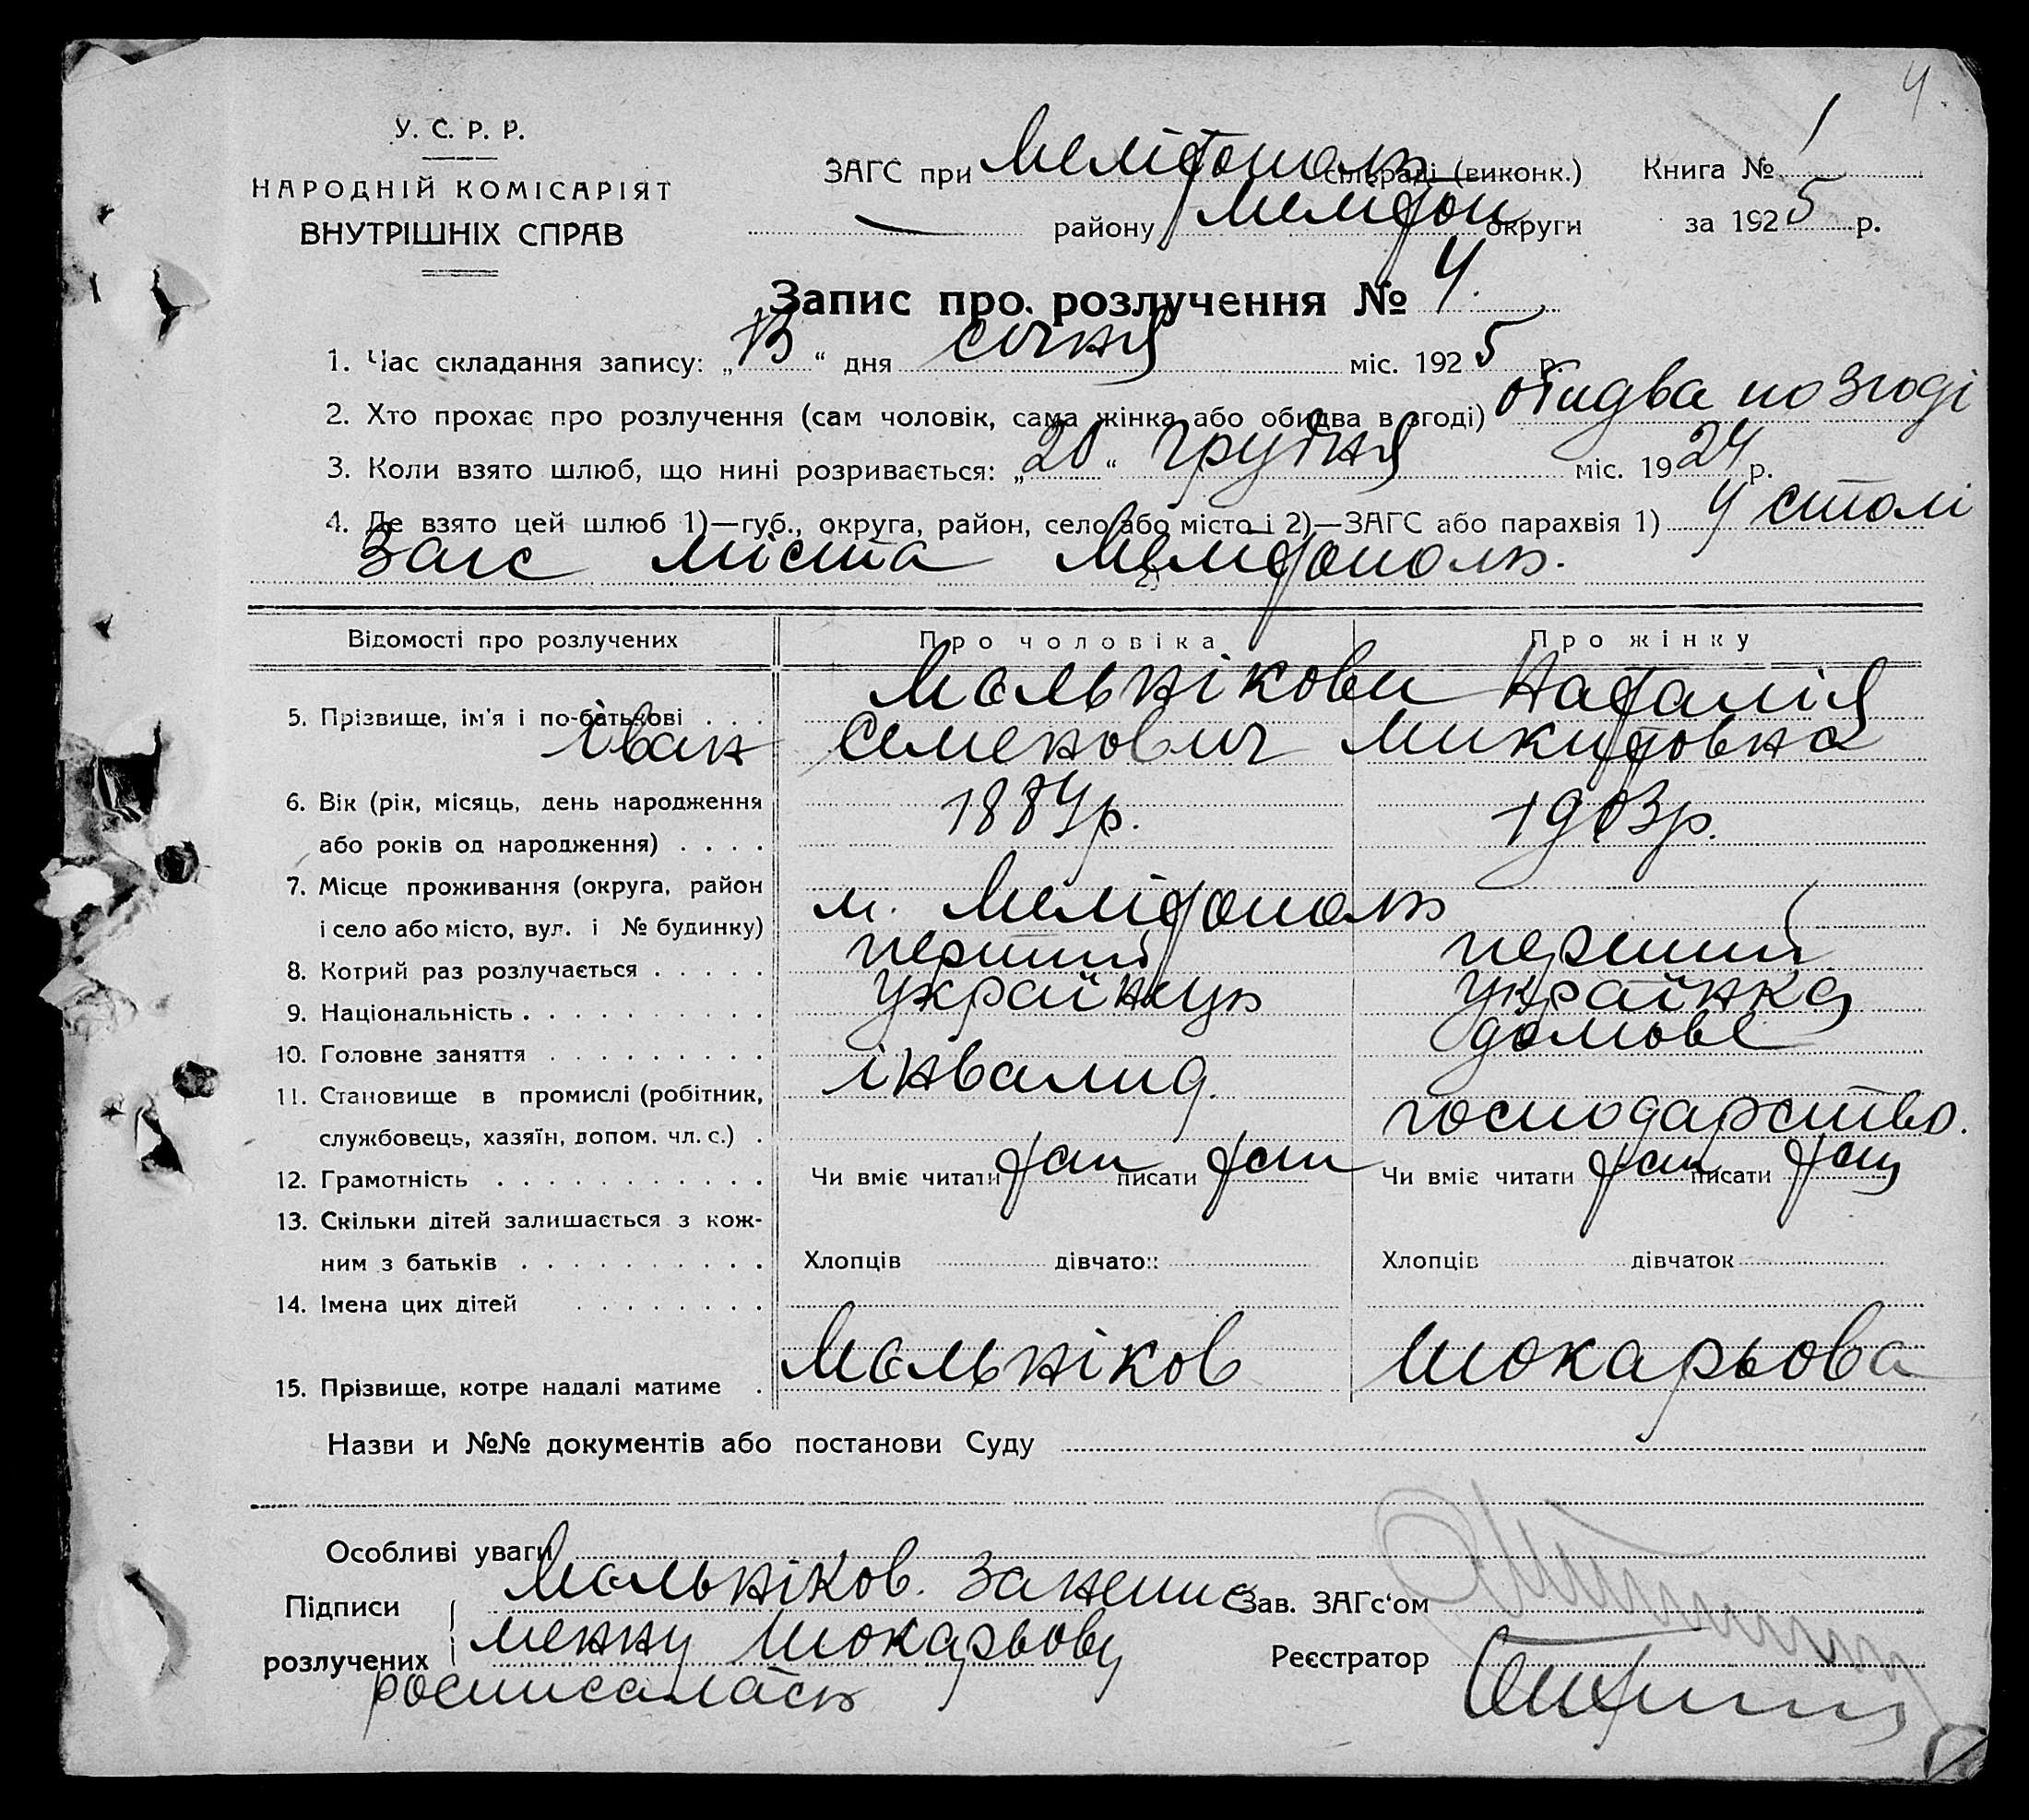 4.
У. С. Р. Р.
НАРОДНІЙ КОМІСАРІЯТ
ВНУТРІШНІХ СПРАВ
ЗАГС при Мелітополь сільраді (виконк.)
району Мелітоп округи
Книга № 1
за 1925 р.
Запис про розлучення № 4.
1. Час складання запису: „13“ дня січня міс. 1925 р.
2. Хто прохає про розлучення (сам чоловік, сама жінка або обидва в згоді) обидва по згоді
3. Коли взято шлюб, що нині розривається: „20“ грудня міс. 1924 р.
4. Де взято цей шлюб 1)—губ., округа, район, село або місто і 2)—ЗАГС або парахвія 1) У столі
Загс міста Мелітополь.
Відомості про розлучених Про чоловіка Про жінку
5. Прізвище, ім'я і по-батькові . . . Мальнікови Наталія
Іван Семенович Микитовна
6. Вік (рік, місяць, день народження
або років од народження) . . . . 1884р. 1903р.
7. Місце проживання (округа, район
і село або місто, вул. і № будинку) м. Мелітополь
8. Котрий раз розлучається . . . . . перший перший
9. Національність . . . . . . . . . . українць українка
10. Головне заняття . . . . . . . . . інвалид. домове
11. Становище в промислі (робітник,
службовець, хазяїн, допом. чл. с.) . господарство.
12. Грамотність . . . . . . . . . . . Чи вміє читати так писати так Чи вміє читати так писати так
13. Скільки дітей залишається з кож-
ним з батьків . . . . . . . . . . Хлопців дівчаток Хлопців дівчаток
14. Імена цих дітей . . . . . . . .
15. Прізвище, котре надалі матиме . Мальніков Шокарьова
Назви и №№ документів або постанови Суду
Особливі уваги
Підписи розлучених Мальніков. За неписменну Шокарьову
росписалась
Зав. ЗАГс'ом
Реєстратор